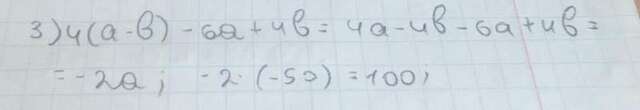 3) 4(a-в) - 6a + 4в = 4a - 4в - 6a + 4в =
= -2a; -2·(-50) = 100;